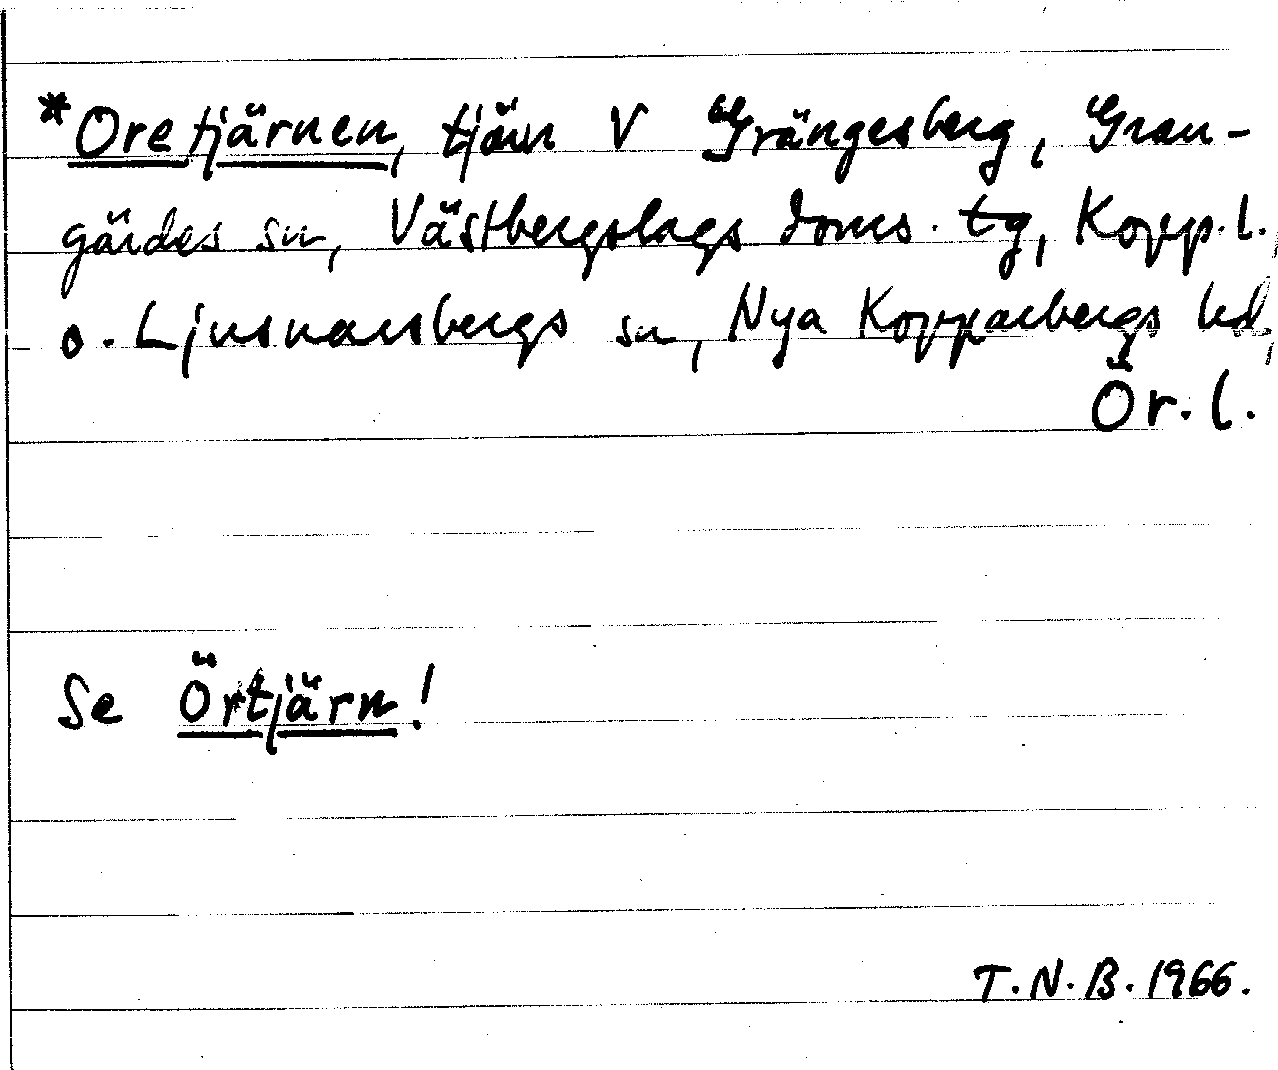 *Oretjärnen, tjärn V Grängesberg, Gran-
gärdes sn, Västbergslags doms. tg, Kopp.l.,
o. Ljusnarsbergs sn, Nya Kopparbergs hd,
Ör.l.
Se Örtjärn!
T.N.B. 1966.